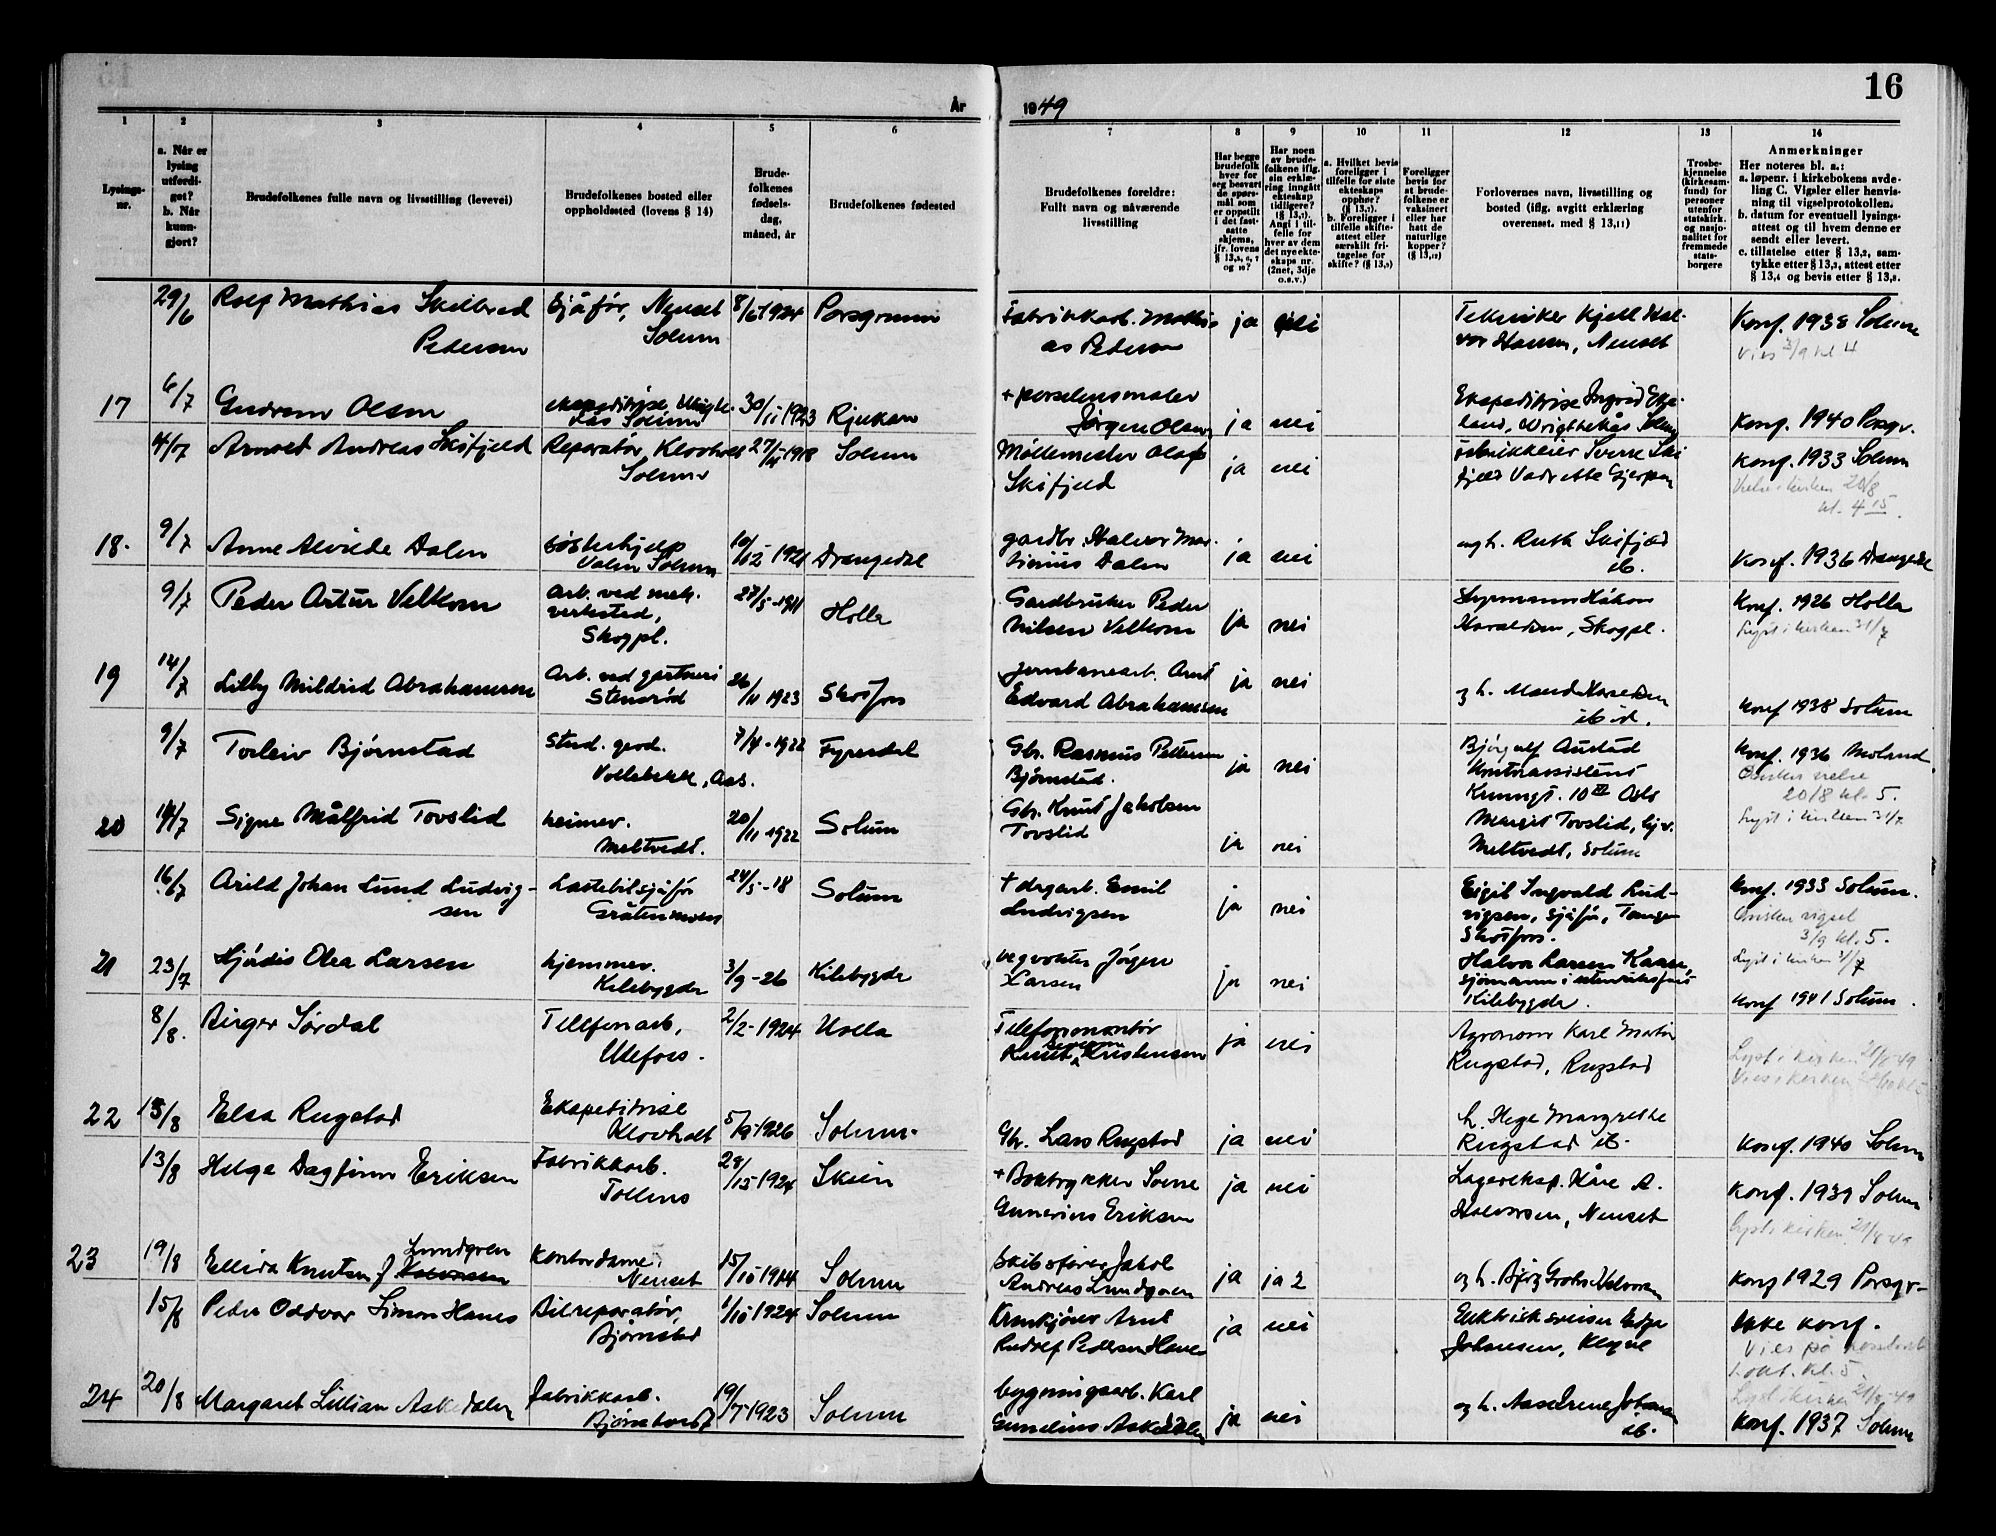 16
År 1949
1
2
3
4
5
6
7
8
9
10
11
12
13
14
Lysings-
nr.
a. Når er
lysing
utferdi-
get?
b. Når
kunn-
gjort?
Brudefolkenes fulle navn og livsstilling (levevei)
Brudefolkenes bosted eller
oppholdssted (lovens § 14)
Brude-
folkenes
fødsels-
dag,
måned, år
Brudefolkenes fødested
Brudefolkenes foreldre:
Fullt navn og nåværende
livsstilling
Har begge
brudefolk
hver for
seg besvart
de spørs-
mål som
er oppstilt
i det fast-
satte
skjema,
jfr. lovens
§ 13,
og 10?
Har noen
av brude-
folkene iflg.
sin erklæ-
ring inngått
ekteskap
tidligere?
(§ 13,1).
Angi i til-
felle for
hver av dem
det nye ekte-
skaps nr.
(2net, 3dje
o.s.v.)
a. Hvilket bevis
foreligger i
tilfelle for siste
ekteskaps
opphør?
b. Foreligger i
tilfelle skifte-
attest eller
særskilt fri-
tagelse for
skifte?
Foreligger
bevis for
at brude-
folkene er
vaksinert
eller har
hatt de
naturlige
kopper?
Forlovernes navn, livsstilling og
bosted (iflg. avgitt erklæring
overensst. med § 13,11)
Trosbe-
kjennelse
(kirkesam-
fund) for
personer
utenfor
statskirk.
og nasjo-
nalitet for
fremmede
stats-
borgere
Anmerkninger
Her noteres bl. a.:
a. løpenr. i kirkebokens avde-
ling C. Vigsler eller henvis-
ning til vigselprotokollen.
b. datum for eventuell lysings-
attest og til hvem denne er
sendt eller levert.
c. tillatelse etter § 13,2, sam-
tykke etter § 13,3, attest etter
§ 13,4 og bevis etter § 13,8.
29/6 Rolf Mathias Skilbred Sjåfør, Nenset 8/6 1924 Porsgrunn Fabrikkarb. Mathi- ja nei Tekniker Kjell Hal- Konf. 1938 Solum
Pedersen Solum as Pedersen vor Hansen, Nenset Vies 3/9 kl 4
17 6/7 Gudrun Olsen ekspeditrise 30/11 1923 Rjukan + porselensmaler Jørgen Olsen ja nei Ekspeditrise Ingrid Eke-
land, Solum Konf. 1940 Porsgr.
4/7 Arnodt Andreas Skifjeld Reparatør, Klovholt 27/4 1918 Solum Møllemester Olaf ja nei Sverre Ski Konf. 1933 Solum
Solum Skifjeld Gjerpen 20/8
kl. 4 15
18. 9/7 Anne Alvilde Dalen Søsterhjelp 10/12 1921 Drangedal gardbr. Halvor Mar- ja nei og h. Ruth Skifjeld
Solum Dalen ib. Konf. 1936 Drangedal
9/7 Peder Artur Velkom Arb. ved mek. 27/5-1911 Holla Gardbruker Peder ja nei Styrmann Håkon Konf. 1926 Holla
verksted, Nilsen Velkom Haraldsen, Skogpl. Lyst i kirken 31/7
Skogpl.
19 14/7 Lilly Mildrid Abrahamsen Arb. ved gartneri 26/11 1923 Skotfoss Jernbanearb. Arnt ja nei
Stensrød Edvard Abrahamsen og h. Maud Haraldsen Konf 1938 Solum
ib id.
9/7 Torleiv Bjørnstad Stud. geod. 7/4-1922 Fyresdal Gbr. Rasmus Pettersen ja nei Bjørgulf Austad Konf. 1936 Moland
Vollebekk, Aas. Bjørnstad. Kontorassistent Ønsker vielse
Kuungt. 10 IV Oslo 20/8 kl. 5.
20 14/7 Signe Målfrid Tovslid heimev. 20/11 1922 Solum Gbr. Knut Jakobsen Margit Tovslid, hjv. Lyst i kirken 31/7
Meltvedt. Tovslid ja nei Meltvedt, Solum
16/7 Arild Johan Lund Ludvig- Lastebilsjåfør 24/5-18 Solum + dagarb. Emil ja nei Eigil Ingvald Lud- Konf. 1933 Solum.
sen Gråtenmoen Ludvigsen vigsen, sjåfør, Tangen Ønsker vigsel
Skotfoss. 3/9 kl. 5.
21 23/7 Hjørdis Olea Larsen hjemmev. 3/9-26 Kilebygda vegvokter Jørgen ja nei Halvor Larsen Kaasa, Lyst i kirken 31/7
Kilebygda Larsen sjømann i utenriksfart
Kilebygda. Konf 1941 Solum.
8/8. Birger Sørdal Telefonarb, 2/2-1924 Holla Telefonmontør ja nei Agronom Karl Martin
Ulefoss. Knut Kristensen Rugstad, Rugstad Lyst i kirken 21/8-49
Vies i kirken
22 15/8 Elsa Rugstad Ekspeditrise 5/9-1926 Solum. Gbr. Lars Rugstad ja nei h. Hege Margrethe
Klovholt Rugstad ib. Konf. 1940 Solum
13/8 Helge Dagfinn Eriksen Fabrikkarb. 1924 Skien + Boktrykker Sverre ja nei Lagereksp. Kåre A. Konf. 1939 Solum
Tollnes Gunerius Eriksen Halvorsen, Nenset Lyst i kirken 21/8 49
23 19/8 Ellida Knutsen f Lundgren Kontordame, 15/10 1914 Solum Skibsfører Jakob ja ja 2
Nenset Andreas Lundgren og h. Bjørg Halvorsen Konf 1929 Porsgr-
15/8 Peder Oddvar Simon Hanes Bilreparatør, 1/10 1924 Solum Krankjører Arnt ja nei Elektrisksveiser Ikke konf.
Bjørnstad Rudolf Pedersen Hanes Johansen, Klepvel Vies på
1. okt. kl. 5
24 20/8 Margaret Lillian Askedalen Fabrikkarb. 19/7-1923 Solum bygningsarb. Karl ja nei og h. Aase Irene Johansen Lyst i kirken 21/8-49
Gunelius Askedalen ib. Konf. 1937 Solum